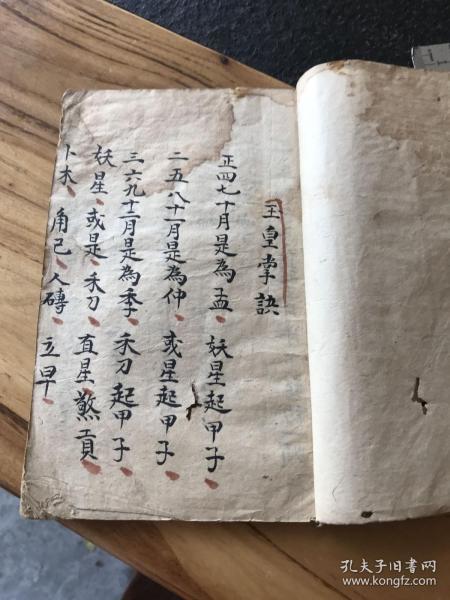 王皇掌訣
正四七十月是為孟、妖星起甲子、
二五八十一月是為仲、或星起甲子、
三六九十二月是為季、禾刀起甲子、
妖星、或是、禾刀、直星、煞貢、
卜木、角己、人磚、立早、
孔夫子旧书网
www.kongfz.com